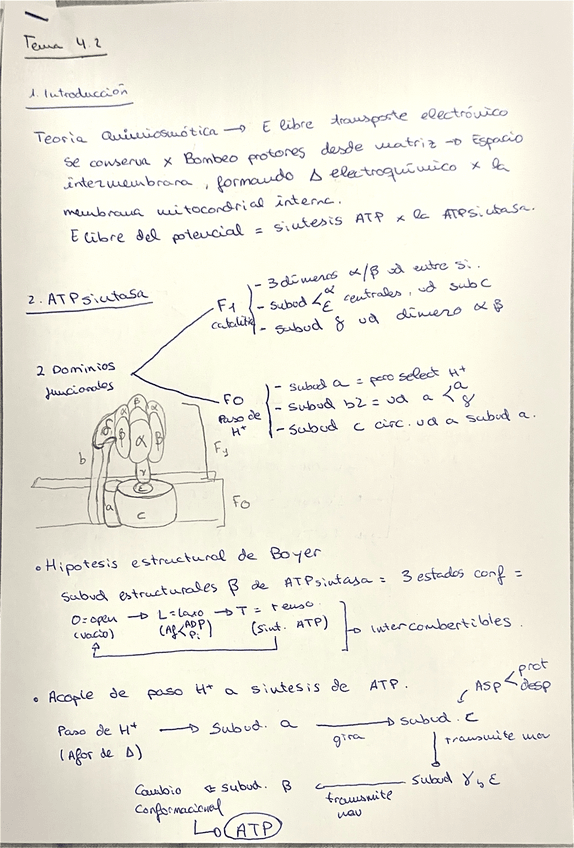 Tema 4.2
1. Introducción
Teoría Quimiosmótica → E libre transporte electrónico
se conserva x Bombeo protones desde matriz → Espacio
intermembrana, formando Δ electroquímico x la
membrana mitocondrial interna.
E libre del potencial = síntesis ATP x la ATPsintasa.
2. ATPsintasa
2 Dominios
funcionales
F1
catalítico
- 3 dímeros α/β ud entre sí.
- subud < α ε centrales, ud sub c
- subud δ ud dímero α β
F0
Paso de
H+
- subud a = poro select H+
- subud b2 = ud a < a δ
- subud c circ. ud a subud a.
β
α α
δ β α β
b γ F1
ε
a c F0
• Hipotesis estructural de Boyer
subud estructurales β de ATPsintasa = 3 estados conf =
O=open → L=laxo → T = tenso
(vacío) (Af < ADP Pi) (Sint. ATP)
intercombertibles.
• Acople de paso H+ a síntesis de ATP.
Asp < prot desp
Paso de H+ → Subud. a → subud. c
(A favor de Δ) gira
transmite mov
Cambio ← subud. β ← subud γ y ε
Conformacional transmite
mov
↳ ATP